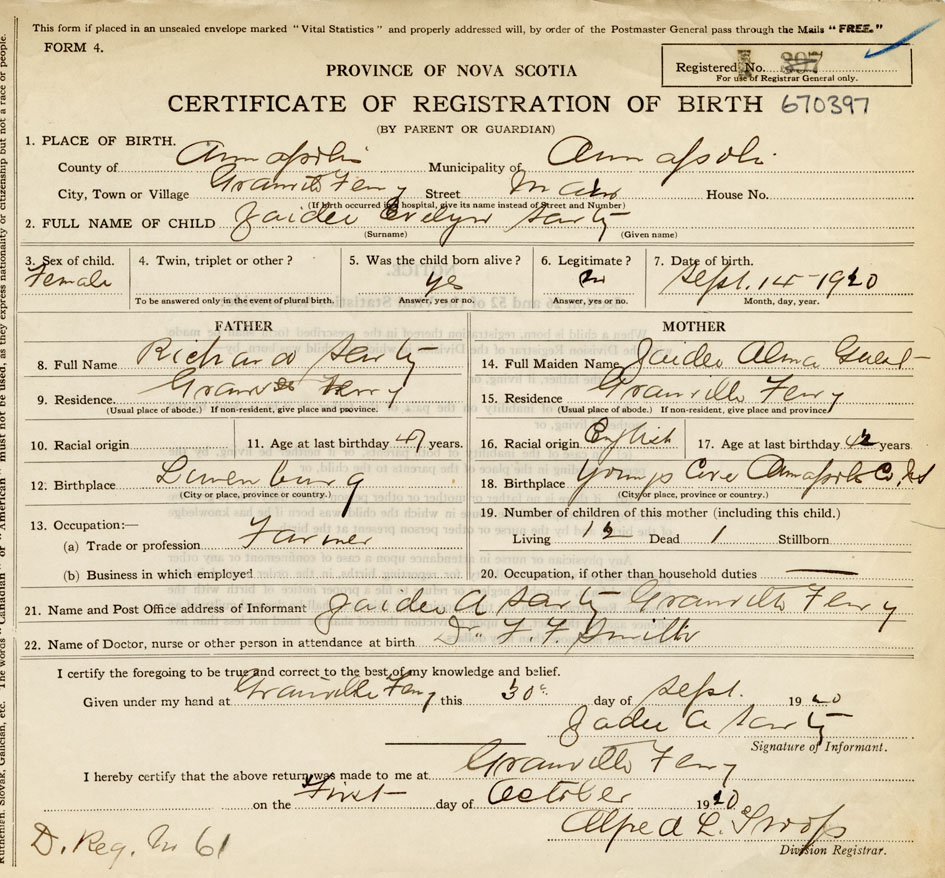 This form if placed in an unsealed envelope marked "Vital Statistics" and properly addressed will, by order of the Postmaster General pass through the Mails "FREE."
FORM 4.
Registered No. 397
For use of Registrar General only.
PROVINCE OF NOVA SCOTIA
CERTIFICATE OF REGISTRATION OF BIRTH 670397
(BY PARENT OR GUARDIAN)
1. PLACE OF BIRTH.
County of Annapolis Municipality of Annapolis
City, Town or Village Granville Ferry Street Main House No.
(If birth occurred in a hospital, give its name instead of Street and Number)
2. FULL NAME OF CHILD Zaidee Evelyn Sarty
(Surname) (Given name)
3. Sex of child. 4. Twin, triplet or other? 5. Was the child born alive? 6. Legitimate? 7. Date of birth.
Female yes Sept. 14 - 1920
To be answered only in the event of plural birth. Answer, yes or no. Answer, yes or no. Month, day, year.
FATHER MOTHER
8. Full Name Richard Sarty 14. Full Maiden Name Zaidee Alma Guest
9. Residence Granville Ferry 15. Residence Granville Ferry
(Usual place of abode.) If non-resident, give place and province. (Usual place of abode.) If non-resident, give place and province.
10. Racial origin 11. Age at last birthday 47 years. 16. Racial origin English 17. Age at last birthday 42 years.
12. Birthplace Lunenburg 18. Birthplace Youngs Cove Annapolis Co. NS
(City or place, province or country.) (City or place, province or country.)
13. Occupation:— 19. Number of children of this mother (including this child.)
(a) Trade or profession Farmer Living 12 Dead 1 Stillborn
(b) Business in which employed 20. Occupation, if other than household duties
21. Name and Post Office address of Informant Zaidee A Sarty Granville Ferry
22. Name of Doctor, nurse or other person in attendance at birth Dr. F. F. Smith
I certify the foregoing to be true and correct to the best of my knowledge and belief.
Given under my hand at Granville Ferry this 30 day of Sept. 1920
Zadee A Sarty
Signature of Informant.
I hereby certify that the above return was made to me at Granville Ferry
on the First day of October 1920
Alfred L. Troop
Division Registrar.
D. Reg. No 61
Ruthenian, Slovak, Galician, etc. The words "Canadian" or "American" must not be used, as they express nationality or citizenship but not a race or people.